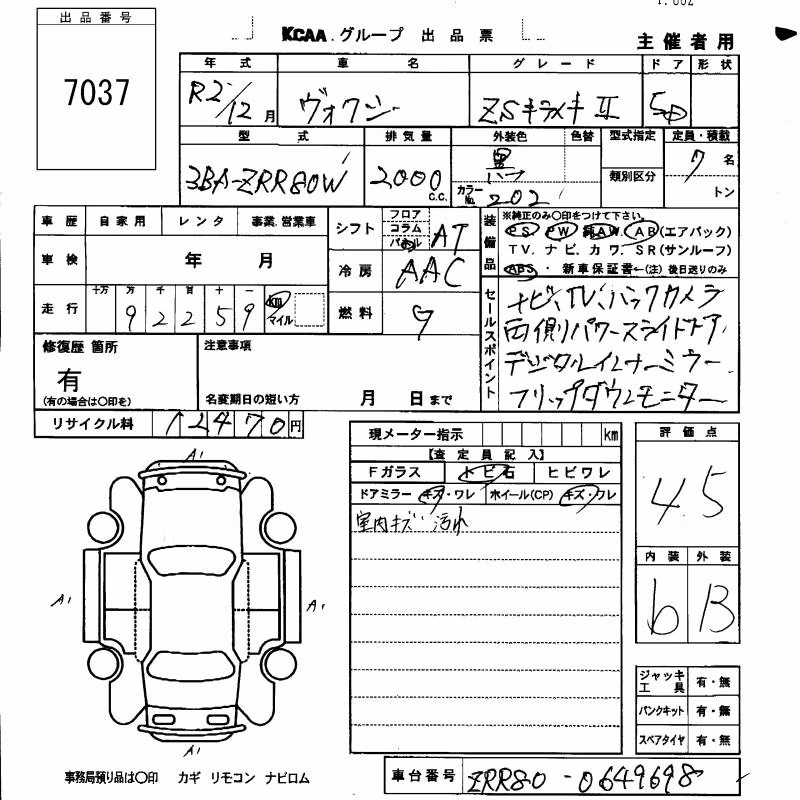 出品番号
7037
KCAA.グループ 出品票
主催者用
年式 車名 グレード ドア 形状
R2/12月 ヴォクシー ZSキラメキⅡ 5D
型式 排気量 外装色 色替 型式指定 定員・積載
3BA-ZRR80W 2000 C.C. 黒 カラーNo. 202 類別区分 7名
トン
車歴 自家用 レンタ 事業.営業車
シフト フロア コラム パネル AT
装備品 ※純正のみ〇印をつけて下さい。
PS PW 純AW. AB(エアバック)
TV. ナビ. カワ. SR(サンルーフ)
ABS・新車保証書←(注)後日送りのみ
車検 年 月
冷房 AAC
走行 十万 万 千 百 十 一 km マイル
92259
燃料 G
セールスポイント
ナビ、TV、バックカメラ
両側パワースライドドア
デジタルインナーミラー
フリップダウンモニター
修復歴 箇所
有
(有の場合は〇印を)
注意事項
名変期日の短い方 月 日まで
リサイクル料 12470円
現メーター指示 km
【査定員記入】
Fガラス トビ石 ヒビワレ
ドアミラー キズ・ワレ ホイール(CP) キズ・ワレ
室内キズ 汚れ
評価点
4.5
内装 外装
b B
A1
A1
A1
A1
ジャッキ工具 有・無
パンクキット 有・無
スペアタイヤ 有・無
事務局預り品は〇印 カギ リモコン ナビロム
車台番号 ZRR80-0649698